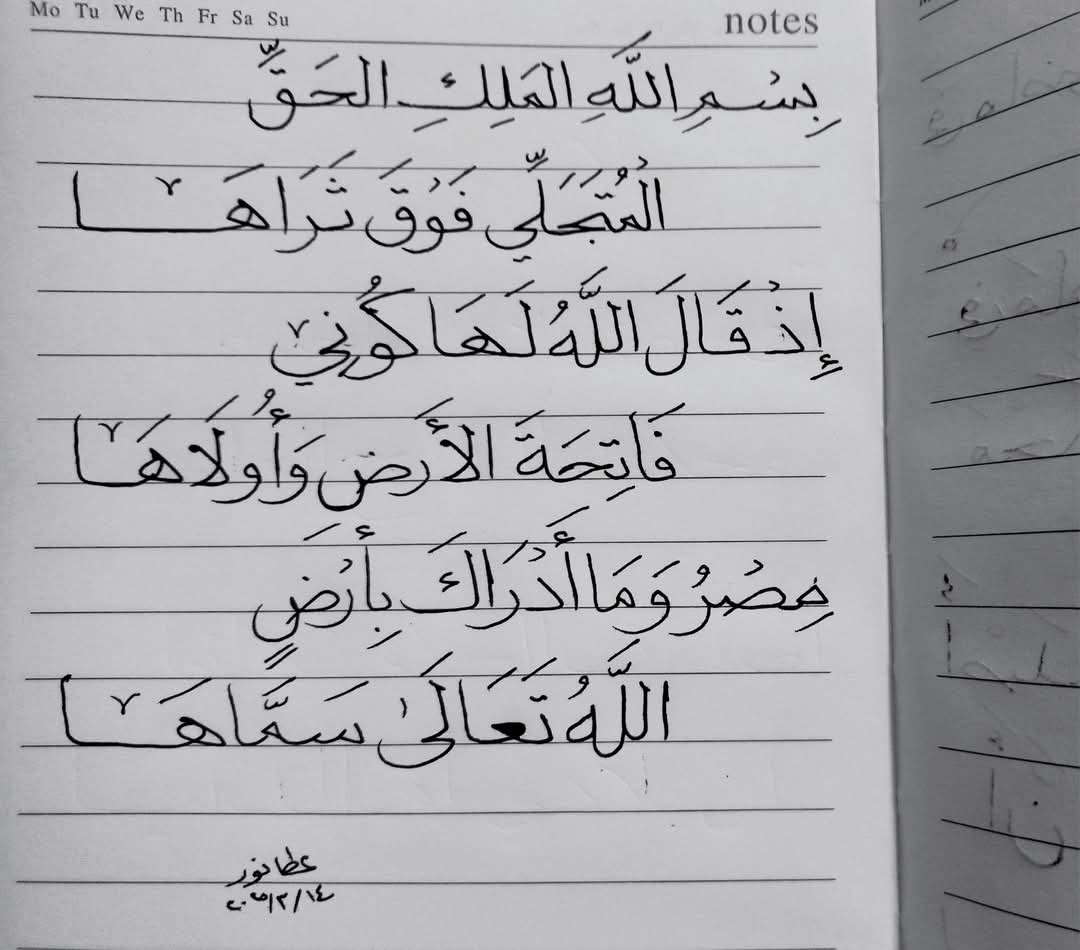 Mo Tu We Th Fr Sa Su
notes
بِسْمِ اللَّهِ المَلِكِ الحَقِّ
المُتَجَلِّي فَوْقَ ثَرَاهَا
إِذْ قَالَ اللَّهُ لَهَا كُونِي
فَاتِحَةَ الأَرضِ وَأُولَاهَا
مِصْرُ وَمَا أَدْرَاكَ بِأَرْضٍ
اللَّهُ تَعَالَى سَمَّاهَا
عطا نور